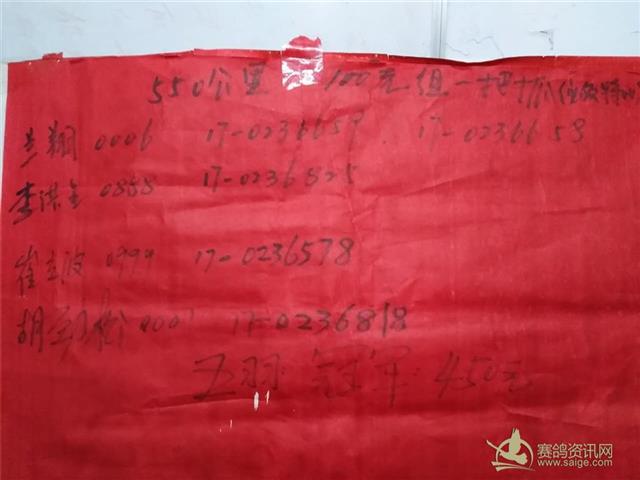 550公里 100元组 一把扒
兰翔 0006 17-0236659 17-0236658
李洪全 0888 17-0236825
崔立波 0999 17-0236578
胡 0001 17-0236818
五羽 冠军 450元
赛鸽资讯网
www.saige.com